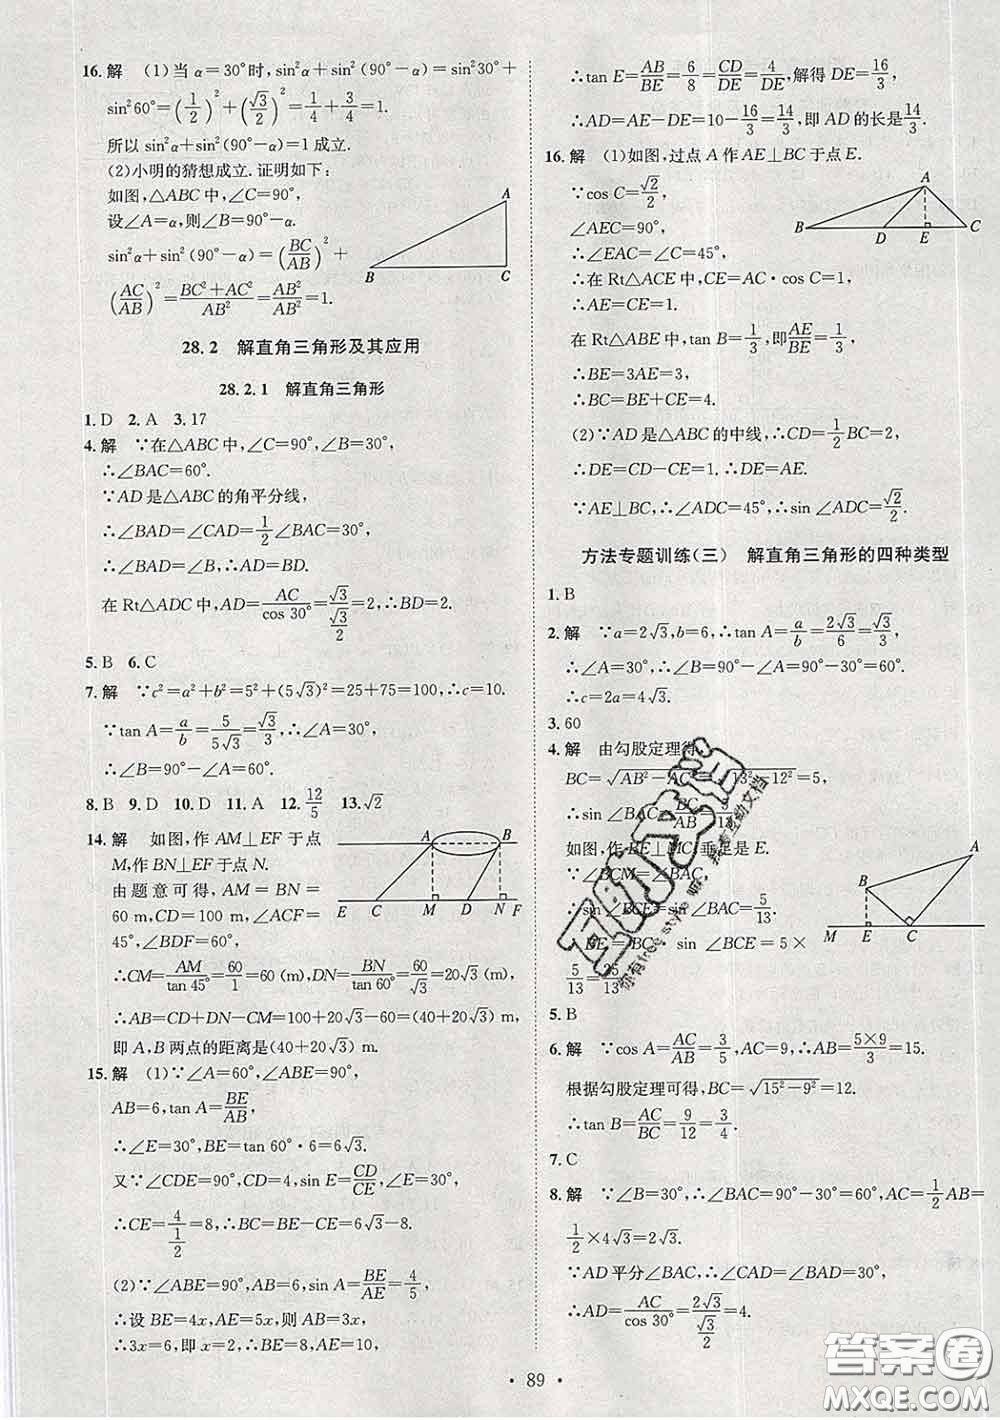 16.解 (1)当α=30°时,sin²α+sin²(90°-α)=sin²30°+
sin²60°=(1/2)²+(√3/2)²=1/4+3/4=1.
所以 sin²α+sin²(90°-α)=1成立.
(2)小明的猜想成立.证明如下:
如图,△ABC中,∠C=90°,
设∠A=α,则∠B=90°-α.
sin²α+sin²(90°-α)=(BC/AB)²+
(AC/AB)²=(BC²+AC²)/AB²=AB²/AB²=1.
A
B
C
28.2 解直角三角形及其应用
28.2.1 解直角三角形
1.D 2.A 3.17
4.解 ∵在△ABC中,∠C=90°,∠B=30°,
∴∠BAC=60°.
∵AD是△ABC的角平分线,
∴∠BAD=∠CAD=1/2∠BAC=30°,
∴∠BAD=∠B,∴AD=BD.
在Rt△ADC中,AD=AC/cos 30°=√3/(√3/2)=2,∴BD=2.
5.B 6.C
7.解 ∵c²=a²+b²=5²+(5√3)²=25+75=100,∴c=10.
∵tan A=a/b=5/(5√3)=√3/3,∴∠A=30°,
∴∠B=90°-∠A=90°-30°=60°.
8.B 9.D 10.D 11.A 12.12/5 13.√2
14.解 如图,作AM⊥EF于点
M,作BN⊥EF于点N.
由题意可得,AM=BN=
60 m,CD=100 m,∠ACF=
45°,∠BDF=60°.
A
B
E
C
M
D
N
F
∴CM=AM/tan 45°=60/1=60(m),DN=BN/tan60°=60/√3=20√3(m),
∴AB=CD+DN-CM=100+20√3-60=(40+20√3) m,
即A,B两点的距离是(40+20√3) m.
15.解 (1)∵∠A=60°,∠ABE=90°,
AB=6,tan A=BE/AB,
∴∠E=30°,BE=tan 60°·6=6√3.
又∵∠CDE=90°,CD=4,sin E=CD/CE,∠E=30°,
∴CE=4/(1/2)=8,∴BC=BE-CE=6√3-8.
(2)∵∠ABE=90°,AB=6,sin A=BE/AE=4/5,
∴设BE=4x,AE=5x,则AB=3x,
∴3x=6,即x=2,∴BE=8,AE=10,
∴tan E=AB/BE=6/8=CD/DE=4/DE,解得DE=16/3,
∴AD=AE-DE=10-16/3=14/3,即AD的长是14/3.
16.解 (1)如图,过点A作AE⊥BC于点E.
∵cos C=√2/2,
∠AEC=90°,
∴∠EAC=∠C=45°,
∴在Rt△ACE中,CE=AC·cos C=1,
∴AE=CE=1.
A
B
D
E
C
在Rt△ABE中,tan B=1/3,即AE/BE=1/3,
∴BE=3AE=3,
∴BC=BE+CE=4.
(2)∵AD是△ABC的中线,∴CD=1/2BC=2,
∴DE=CD-CE=1,∴DE=AE.
∵AE⊥BC,∴∠ADC=45°,∴sin∠ADC=√2/2.
方法专题训练(三) 解直角三角形的四种类型
1.B
2.解 ∵a=2√3,b=6,∴tan A=a/b=2√3/6=√3/3,
∴∠A=30°,∴∠B=90°-∠A=90°-30°=60°,
∴c=2a=4√3.
3.60
4.解 由勾股定理得,
BC=√(AB²-AC²)=√(13²-12²)=5,
∴sin∠BAC=BC/AB=5/13.
如图,作BE⊥MC,垂足是E.
∵∠BCM=∠BAC,
∴sin∠BCE=sin∠BAC=5/13.
∴BE=BC·sin∠BCE=5×
5/13=25/13.
A
B
M
E
C
5.B
6.解 ∵cos A=AC/AB=3/5,AC=9,∴AB=(5×9)/3=15.
根据勾股定理可得,BC=√(15²-9²)=12.
∴tan B=AC/BC=9/12=3/4.
7.C
8.解 ∵∠B=30°,∴∠BAC=90°-30°=60°,AC=1/2AB=
1/2×4√3=2√3.
∵AD平分∠BAC,∴∠CAD=30°,
∴AD=AC/cos 30°=2√3/(√3/2)=4.
89
答案圈
MXQE.COM